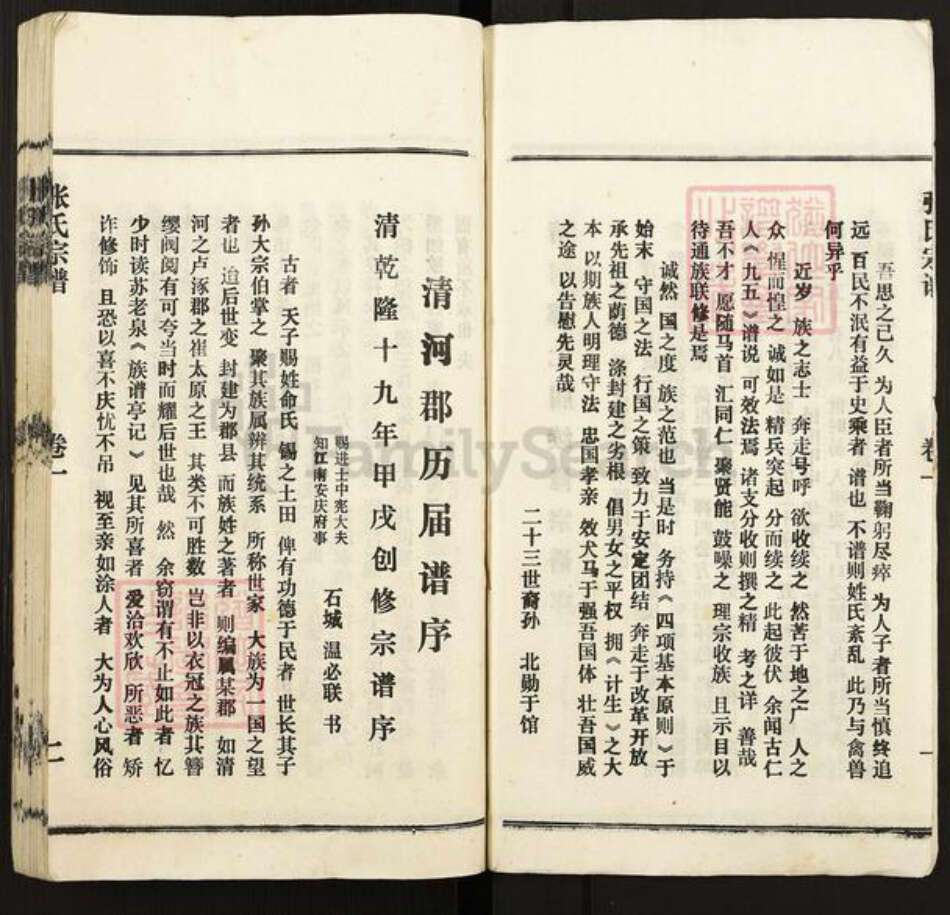 吾思之己久 为人臣者所当鞠躬尽瘁 为人子者所当慎终追
远 百民不泯有益于史乘者 谱也 不谱则姓氏紊乱 此乃与禽兽
何异乎
近岁 族之志士 奔走号呼 欲收续之 然苦于地之广 人之
众 惺而惶之 诚如是 精兵突起 分而续之 此起彼伏 余闻古仁
人《九五》谱说 可效法焉 诸支分收则撰之精 考之详 善哉
吾不才 愿随马首 汇同仁 聚贤能 鼓噪之 理宗收族 且示目以
待通族联修是焉
诚然 国之度 族之范也 当是时 务持《四项基本原则》于
始末 守国之法 行国之策 致力于安定团结 奔走于改革开放
承先祖之荫德 涤封建之劣根 倡男女之平权 拥《计生》之大
本 以期族人明理守法 忠国孝亲 效犬马于强吾国体 壮吾国威
之途 以告慰先灵哉
二十三世裔孙 北勋于馆
清河郡历届谱序
清乾隆十九年甲戌创修宗谱序
赐进士中宪大夫
知江南安庆府事
石城 温必联 书
古者 天子赐姓命氏 锡之土田 俾有功德于民者 世长其子
孙大宗伯掌之 聚其族属辨其统系 所称世家 大族为一国之望
者也 迨后世变 封建为郡县 而族姓之著者 则编属某郡 如清
河之卢涿郡之崔太原之王 其类不可胜数 岂非以衣冠之族其簪
缨阀阅有可夸当时而耀后世也哉 然 余窃谓有不止如此者 忆
少时读苏老泉《族谱亭记》见其所喜者 爱洽欢欣 所恶者 矫
诈修饰 且恐以喜不庆忧不吊 视至亲如涂人者 大为人心风俗
张氏宗谱
卷一
二
FamilySearch